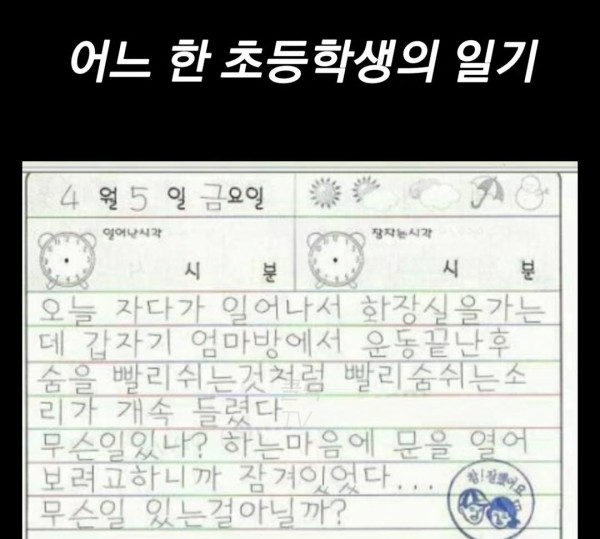 어느 한 초등학생의 일기
4 월 5 일 금요일
일어난시각
잠자는시각
시 분
시 분
오늘 자다가 일어나서 화장실을가는
데 갑자기 엄마방에서 운동끝난후
숨을 빨리쉬는것처럼 빨리숨쉬는소
리가 개속 들렸다
무슨일있나? 하는마음에 문을 열어
보려고하니까 잠겨있었다...
무슨일 있는걸아닐까?
참!잘했어요